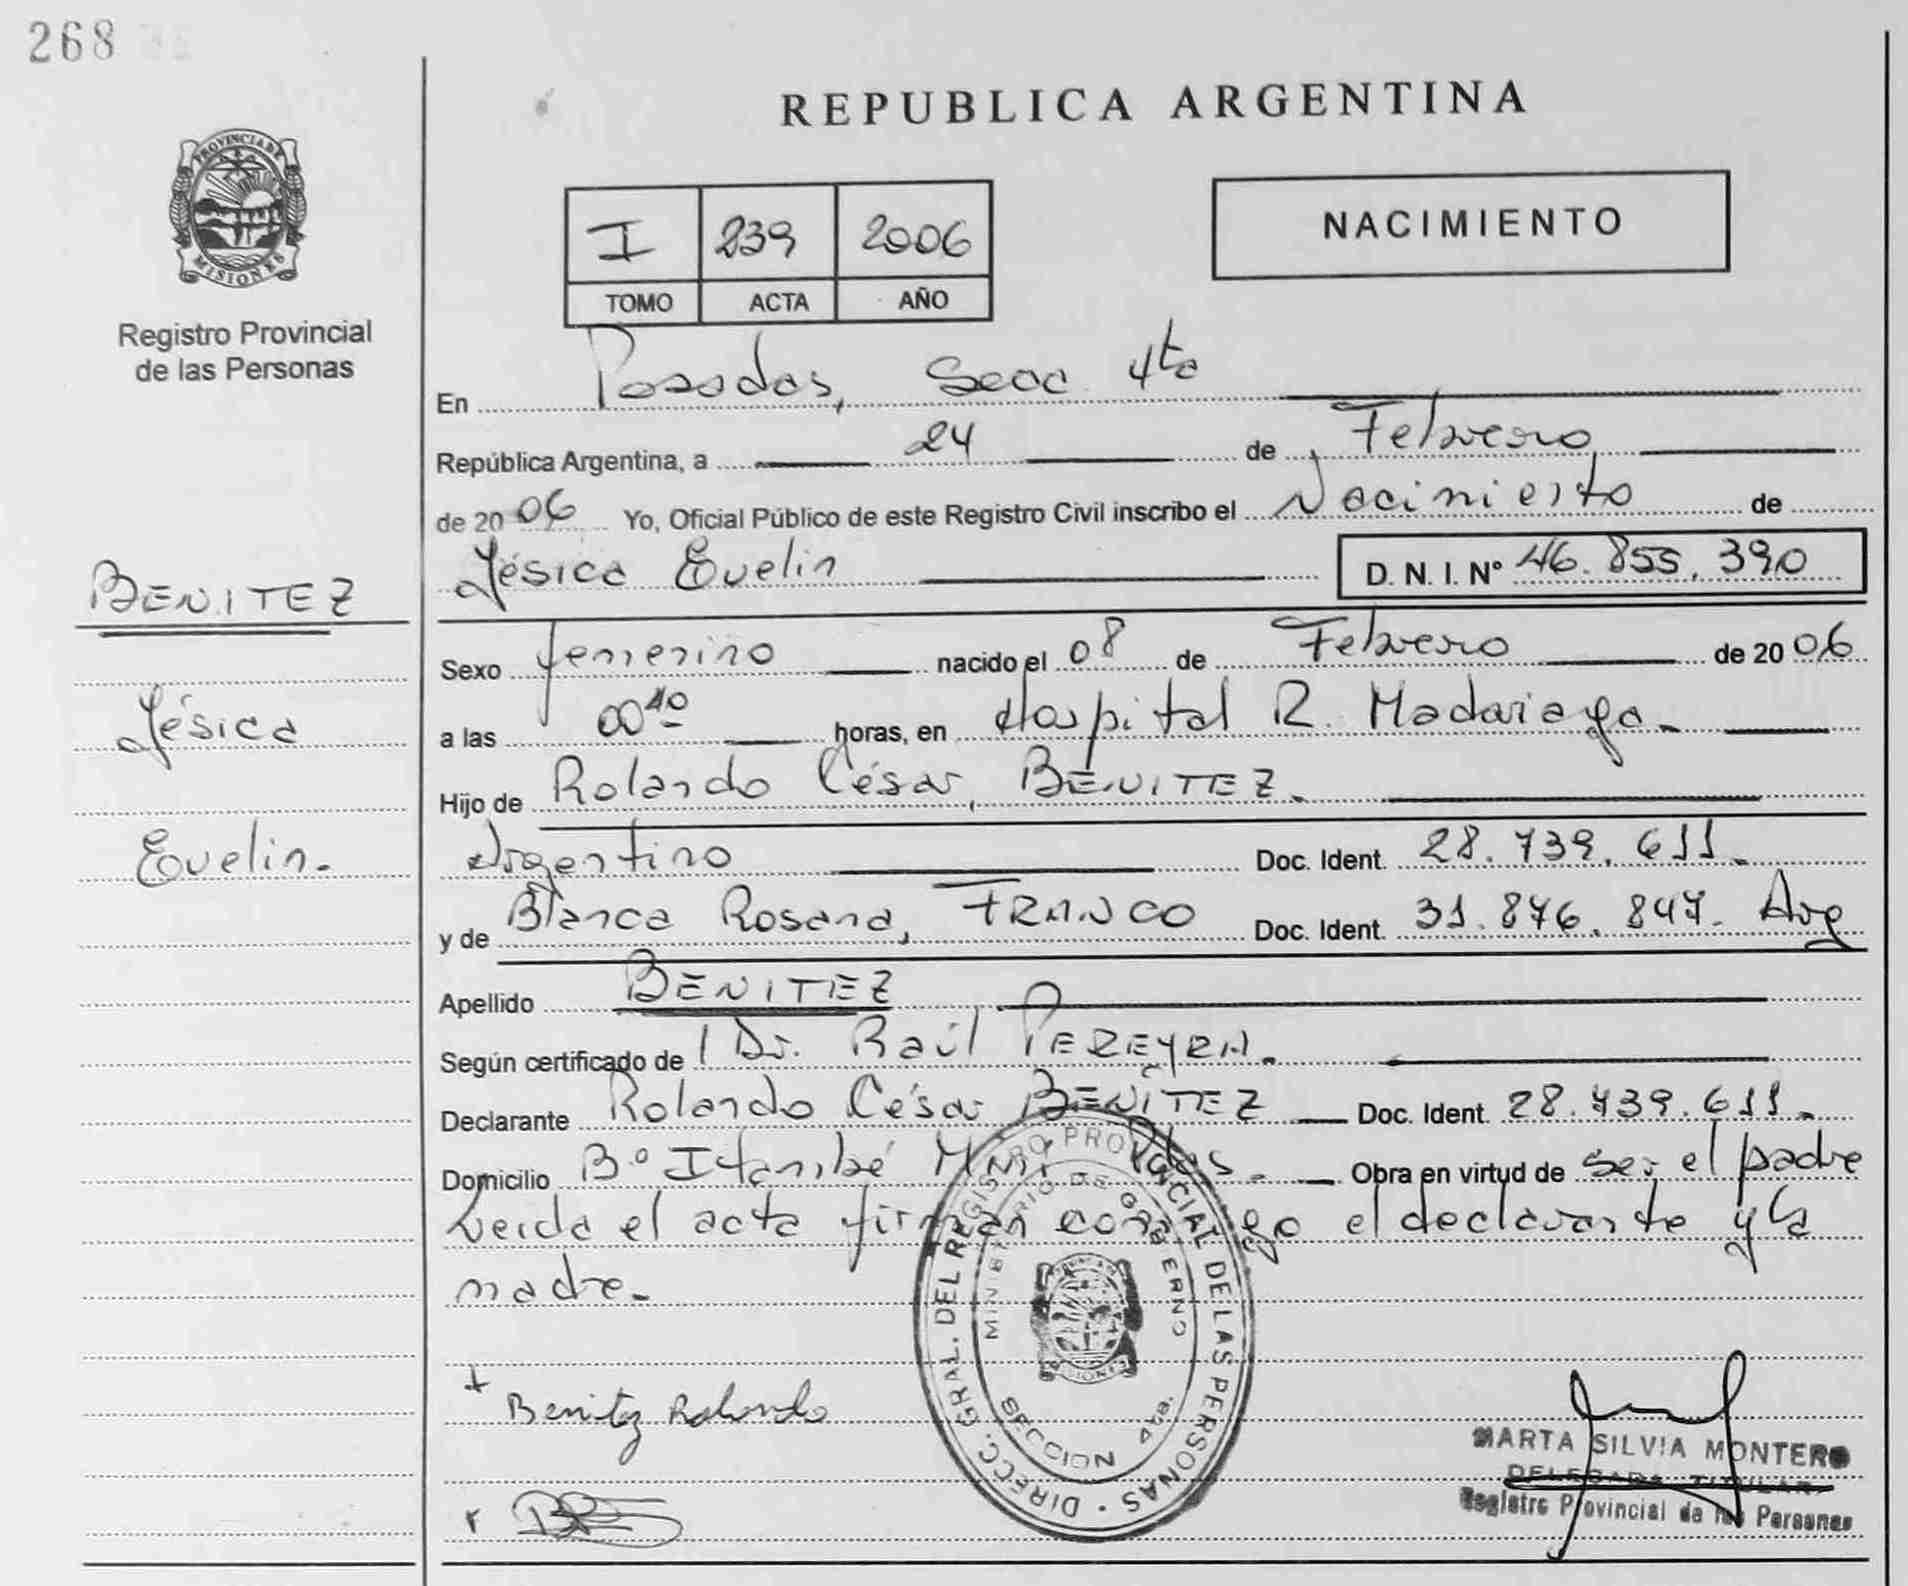 268
PROVINCIA DE
MISIONES
Registro Provincial
de las Personas
BENITEZ
Jésica
Evelin.
REPUBLICA ARGENTINA
I 239 2006
TOMO ACTA AÑO
NACIMIENTO
En Posadas, Secc 4ta
República Argentina, a 24 de Febrero
de 2006 Yo, Oficial Público de este Registro Civil inscribo el Nacimiento de
Jésica Evelin D. N. I. Nº 46.855.390
Sexo femenino nacido el 08 de Febrero de 2006
a las 00 40 horas, en Hospital R. Madariaga.
Hijo de Rolando César, BENITEZ.
Argentino Doc. Ident. 28.739.611.
y de Blanca Rosana, FRANCO Doc. Ident. 31.876.847. Arg
Apellido BENITEZ
Según certificado de Dr. Raúl PEREYRA.
Declarante Rolando César BENÍTEZ Doc. Ident. 28.739.611.
Domicilio Bº Itambé Miní Pdas. Obra en virtud de ser el padre
Leída el acta firman conmigo el declarante y la
madre.
Benitez Rolando
DIRECC. GRAL. DEL REGISTRO PROVINCIAL DE LAS PERSONAS
MINISTERIO DE GOBIERNO
SECCION 4ta.
MISIONES
MARTA SILVIA MONTERO
DELEGADA TITULAR
Registro Provincial de las Personas